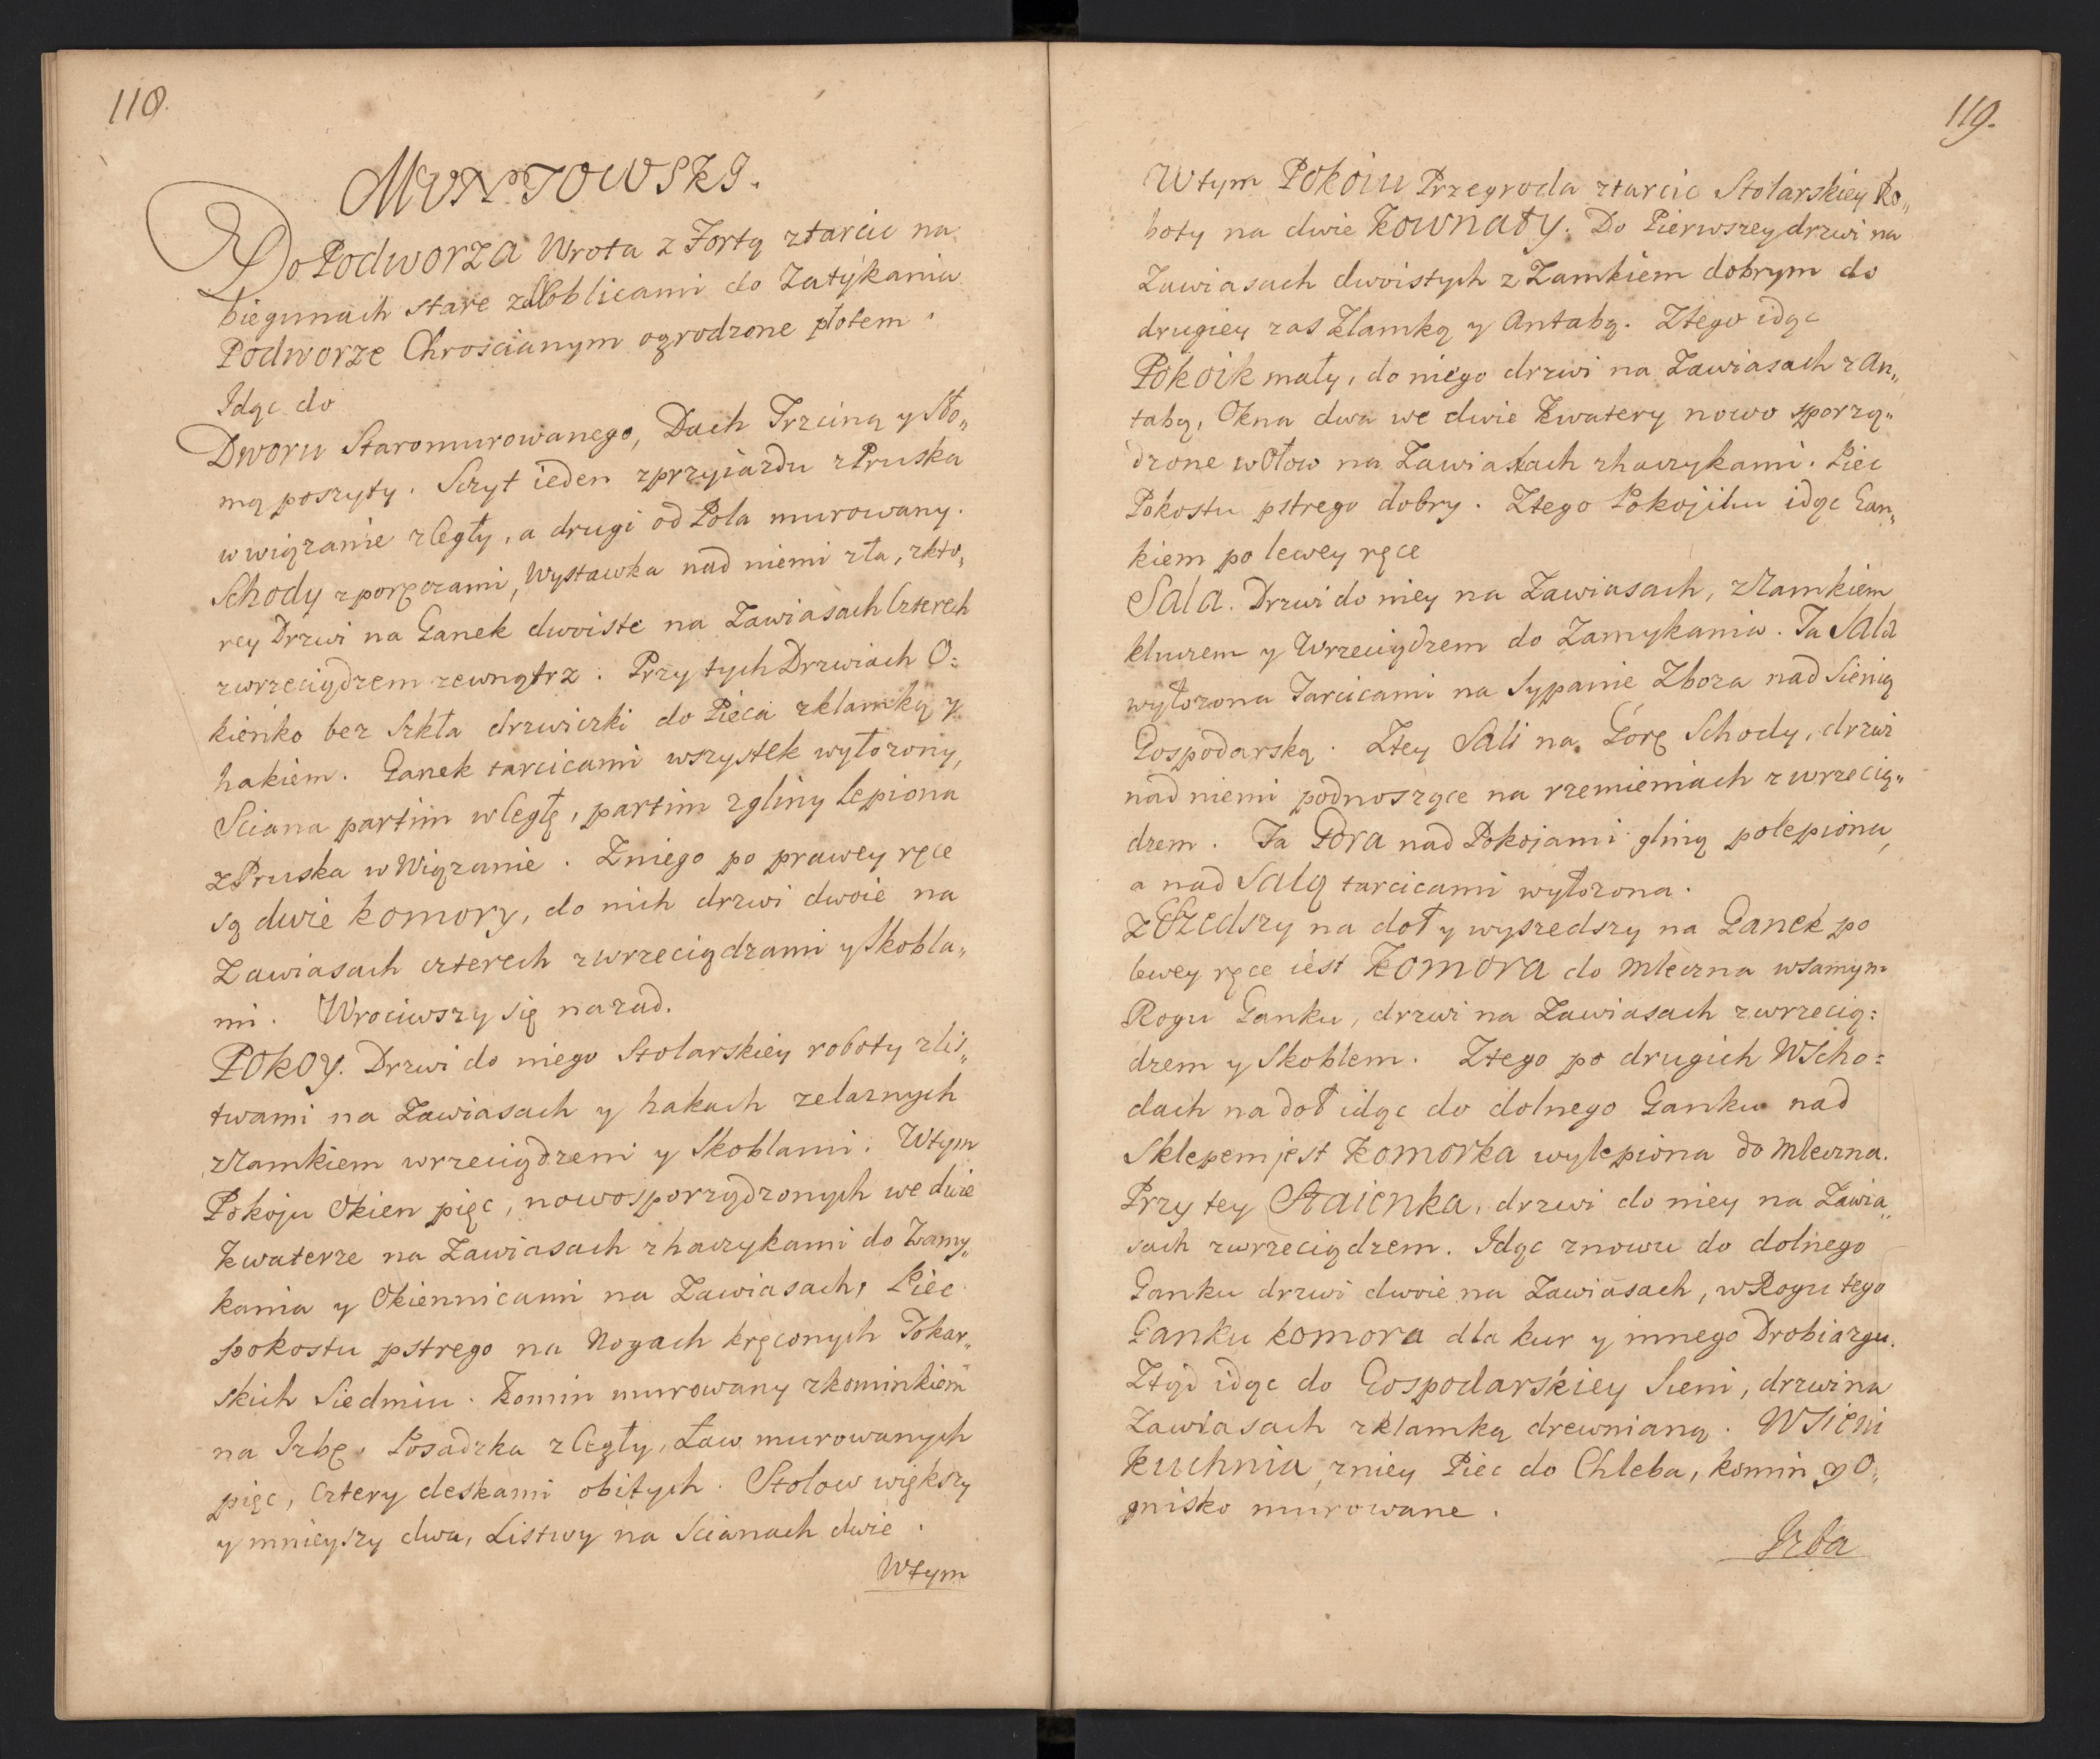 118.
MUNTOWSKI.
Do Podworza Wrota z Fortą ztarcic na
biegunach stare zdłoblicami do Zatýkania
Podworze Chroscianym ogrodzone płotem.
Idąc do
Dworu Staromurowanego, Dach Trzciną y Sło„
mą poszyty. Sczyt ieden zprzyiazdu zPruska
w wiązanie zCegły, a drugi od Pola murowany.
Schody zporęczami, Wystawka nad niemi zła, zkto„
rey Drzwi na Ganek dwoiste na Zawiasach Czterech
zwrzeciądzem zewnątrz. Przy tych Drzwiach O:
kienko bez Szkła drzwiczki do Pieca zklamką y
hakiem. Ganek tarcicami wszystek wyłozony,
Sciana partim wCegłę, partim zgliny lepiona
zPruska w Wiązanie. Zniego po prawey ręce
są dwie komory, do nich drzwi dwoie na
Zawiasach czterech zwrzeciądzami y Skobla„
mi. Wrociwszy się nazad.
Pokoy. Drzwi do niego Stolarskiey roboty zlis„
twami na Zawiasach y hakach zelaznych
zZamkiem wrzeciądzem y Skoblami. Wtym
Pokoju Okien pięc, nowosporządzonych we dwie
Kwaterze na Zawiasach zhaczykami do Zamy„
kania y Okiennicami na Zawiasach, Piec
pokostu pstrego na Nogach kręconych Tokar„
skich Siedmiu. Komin murowany zkominkiem
na Izbę. Posadzka zCegły, Ław murowanych
pięc, Cztery deskami obitych. Stolow większy
y mnieyszy dwa, Listwy na Scianach dwie.
Wtym
119.
Wtym Pokoiu Przegroda ztarcic Stolarskiey Ro„
boty na dwie Kownaty. Do Pierwszey drzwi na
Zawiasach dwoistych z Zamkiem dobrym do
drugiey zas Klamką y Antabą. Ztego idąc
Pokoik mały, do niego drzwi na Zawiasach zAn„
tabą, Okna dwa we dwie Kwatery nowo sporzą„
dzone wOłow na Zawiasach zhaczykami. Piec
Pokostu pstrego dobry. Ztego Pokojiku idąc Gan„
kiem po lewey ręce
Sala. Drzwi do niey na Zawiasach, zZamkiem
kluczem y Wrzeciądzem do Zamykania. Ta Sala
wyłozona Tarcicami na Sypanie Zboza nad Sienią
Gospodarską. Ztey Sali na Górę Schody, drzwi
nad niemi podnoszące na rzemieniach zwrzecią„
dzem. Ta Góra nad Pokojami gliną polepiona,
a nad Salą tarcicami wyłozona.
zSzedszy na doł y wyszedszy na Ganek po
lewey ręce iest Komora do Mleczna wsamym
Rogu Ganku, drzwi na Zawiasach zwrzecią:
dzem y Skoblem. Ztego po drugich WScho:
dach na doł idąc do dolnego Ganku nad
Sklepem jest Komorka wylepiona do Mleczna.
Przy tey Staienka, drzwi do niey na Zawia„
sach zwrzeciądzem. Idąc znowu do dolnego
Ganku drzwi dwoie na Zawiasach, wRogu tego
Ganku komora dla kur y innego Drobiazgu.
Ztąd idąc do Gospodarskiey Sieni, drzwi na
Zawiasach zklamką drewnianą. WSieni
Kuchnia, zniey Piec do Chleba, komin y O„
gnisko murowane.
Izba